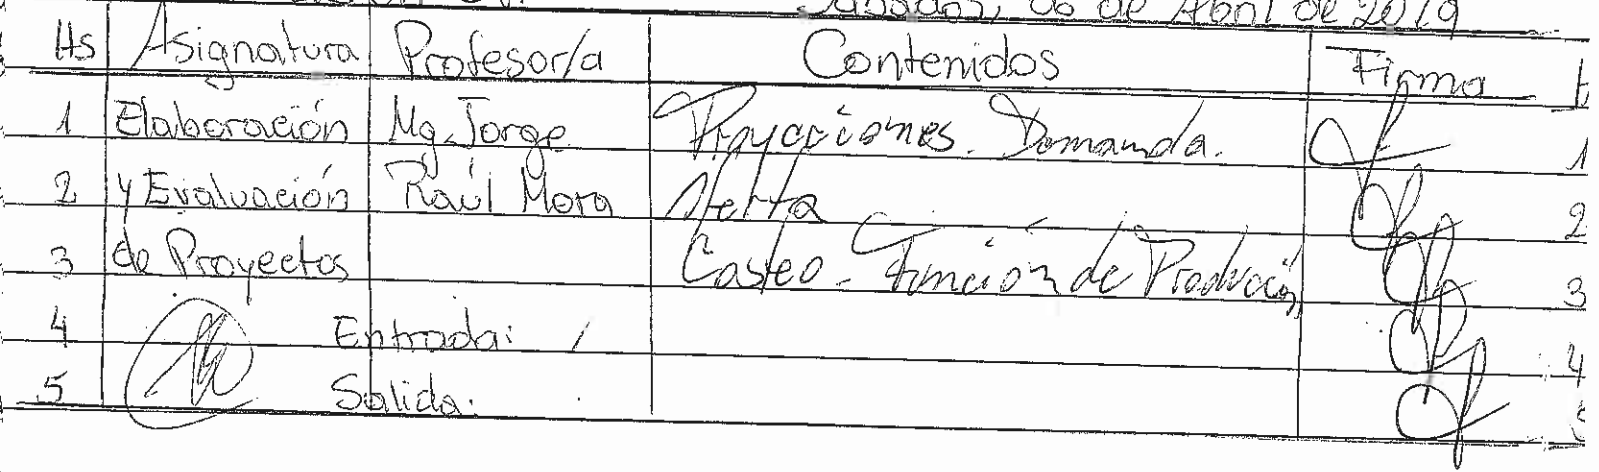 Sábados, 06 de Abril de 2019
Hs Asignatura Profesor/a Contenidos Firma
1 Elaboración Mg. Jorge Proyecciones. Demanda. 1
2 y Evaluación Raúl Mora Neta 2
3 de Proyectos Costeo - Función de Producción 3
4 Entrada: 4
5 Salida: